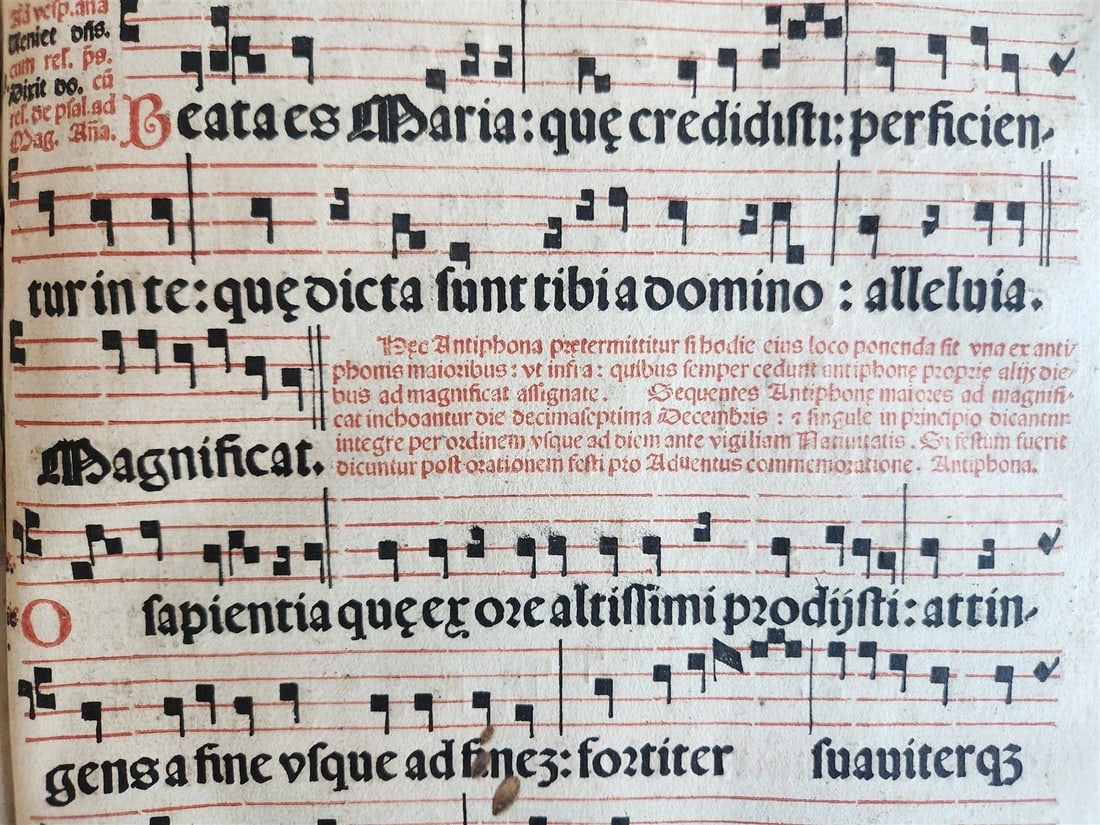 ad vesp. aña
Ueniet dñs.
cum rel. p̃s.
Dixit do. cū
rel. de psal. ad
Mag. Aña.
Beata es Maria: quę credidisti: perficien-
tur in te: quę dicta sunt tibi a domino : alleluia.
Hęc Antiphona prętermittitur si hodie eius loco ponenda sit vna ex anti-
phonis maioribus: vt infra: quibus semper cedunt antiphonę proprię alijs die-
bus ad magnificat assignate. Sequentes Antiphonę maiores ad magnifi-
cat inchoantur die decimaseptima Decembris : ⁊ singule in principio dicantur
integre per ordinem vsque ad diem ante vigiliam Natiuitatis. Si festum fuerit
dicuntur post orationem festi pro Aduentus commemoratione. Antiphona.
Magnificat.
O sapientia quę ex ore altissimi prodijsti: attin-
gens a fine vsque ad finez: fortiter suauiterqꝫ